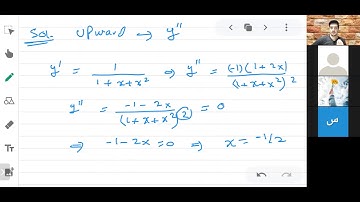 Sol. upward → y''
y' = 1 / (1+x+x²) ⇒ y'' = (-1)(1+2x) / (1+x+x²)²
y'' = -1-2x / (1+x+x²)² = 0
⇒ -1-2x=0 ⇒ x = -1/2
س